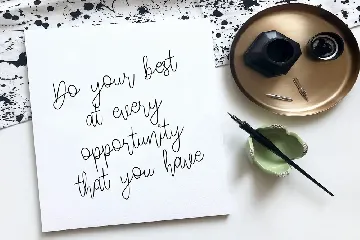 Do your best
at every
opportunity
that you have